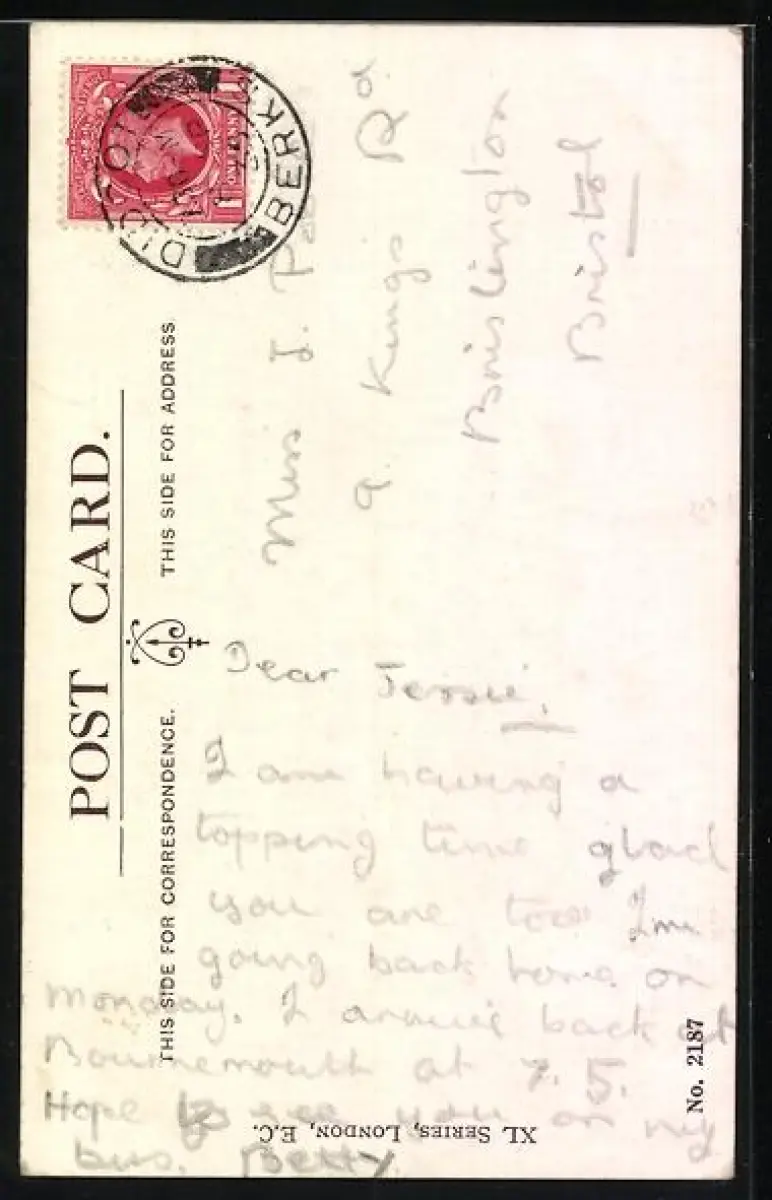 POST CARD.
THIS SIDE FOR CORRESPONDENCE.
THIS SIDE FOR ADDRESS
DIDCOT
BERKS
Miss J.
9 Kings Rd
Brislington
Bristol
Dear Jessie,
I am having a
topping time glad
you are too I'm
going back home on
Monday. I arrive back at
Bournemouth at 7. 5.
Hope to see you on my
bus. Betty
XL SERIES, LONDON, E.C.
No. 2187